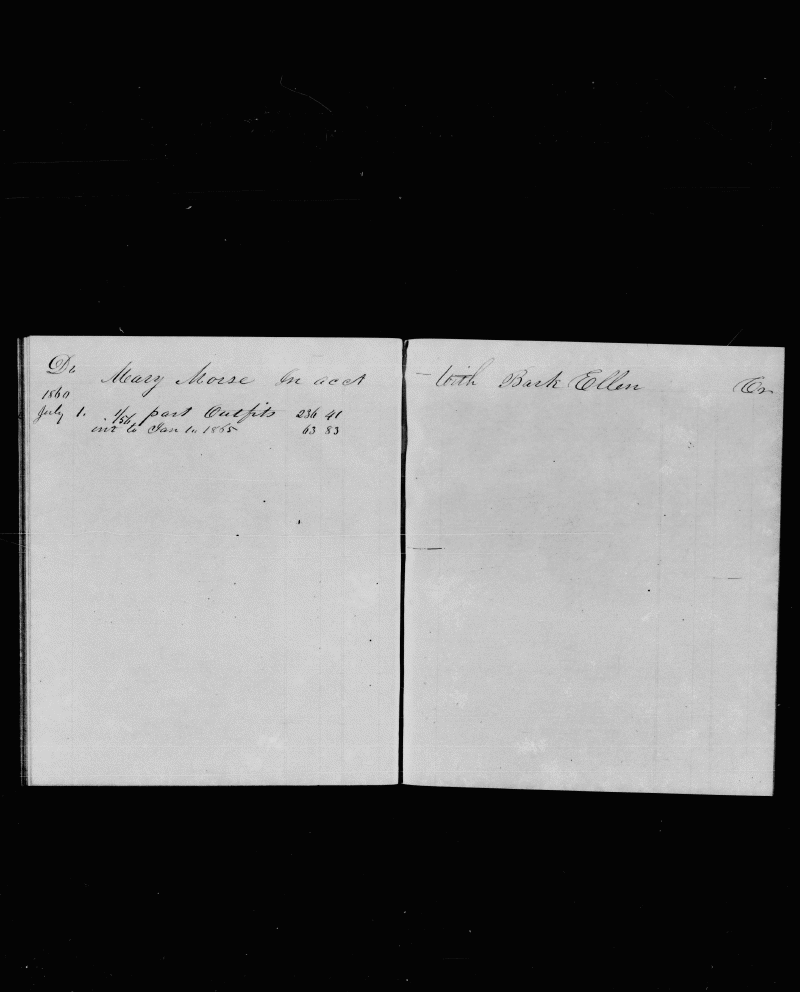 Dr
Mary Morse In acct
1860
July 1. 1/56 part Outfits 236 41
int to Jan 1. 1865 63 83
With Bark Ellen Cr